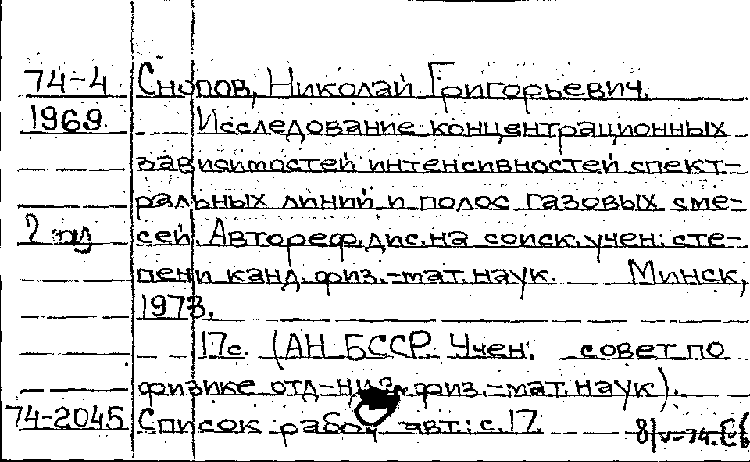 74-4 Снопов, Николай Григорьевич.
1969 Исследование концентрационных
зависимостей интенсивностей спект-
ральных линий и полос газовых сме-
сей. Автореф. дис. на соиск. учен. сте-
пени канд. физ.-мат. наук. Минск,
1973.
17с. (АН БССР. Учен. совет по
физике отд-ния физ.-мат. наук).
74-2045 Список работ авт.: с. 17.
8/V-74.